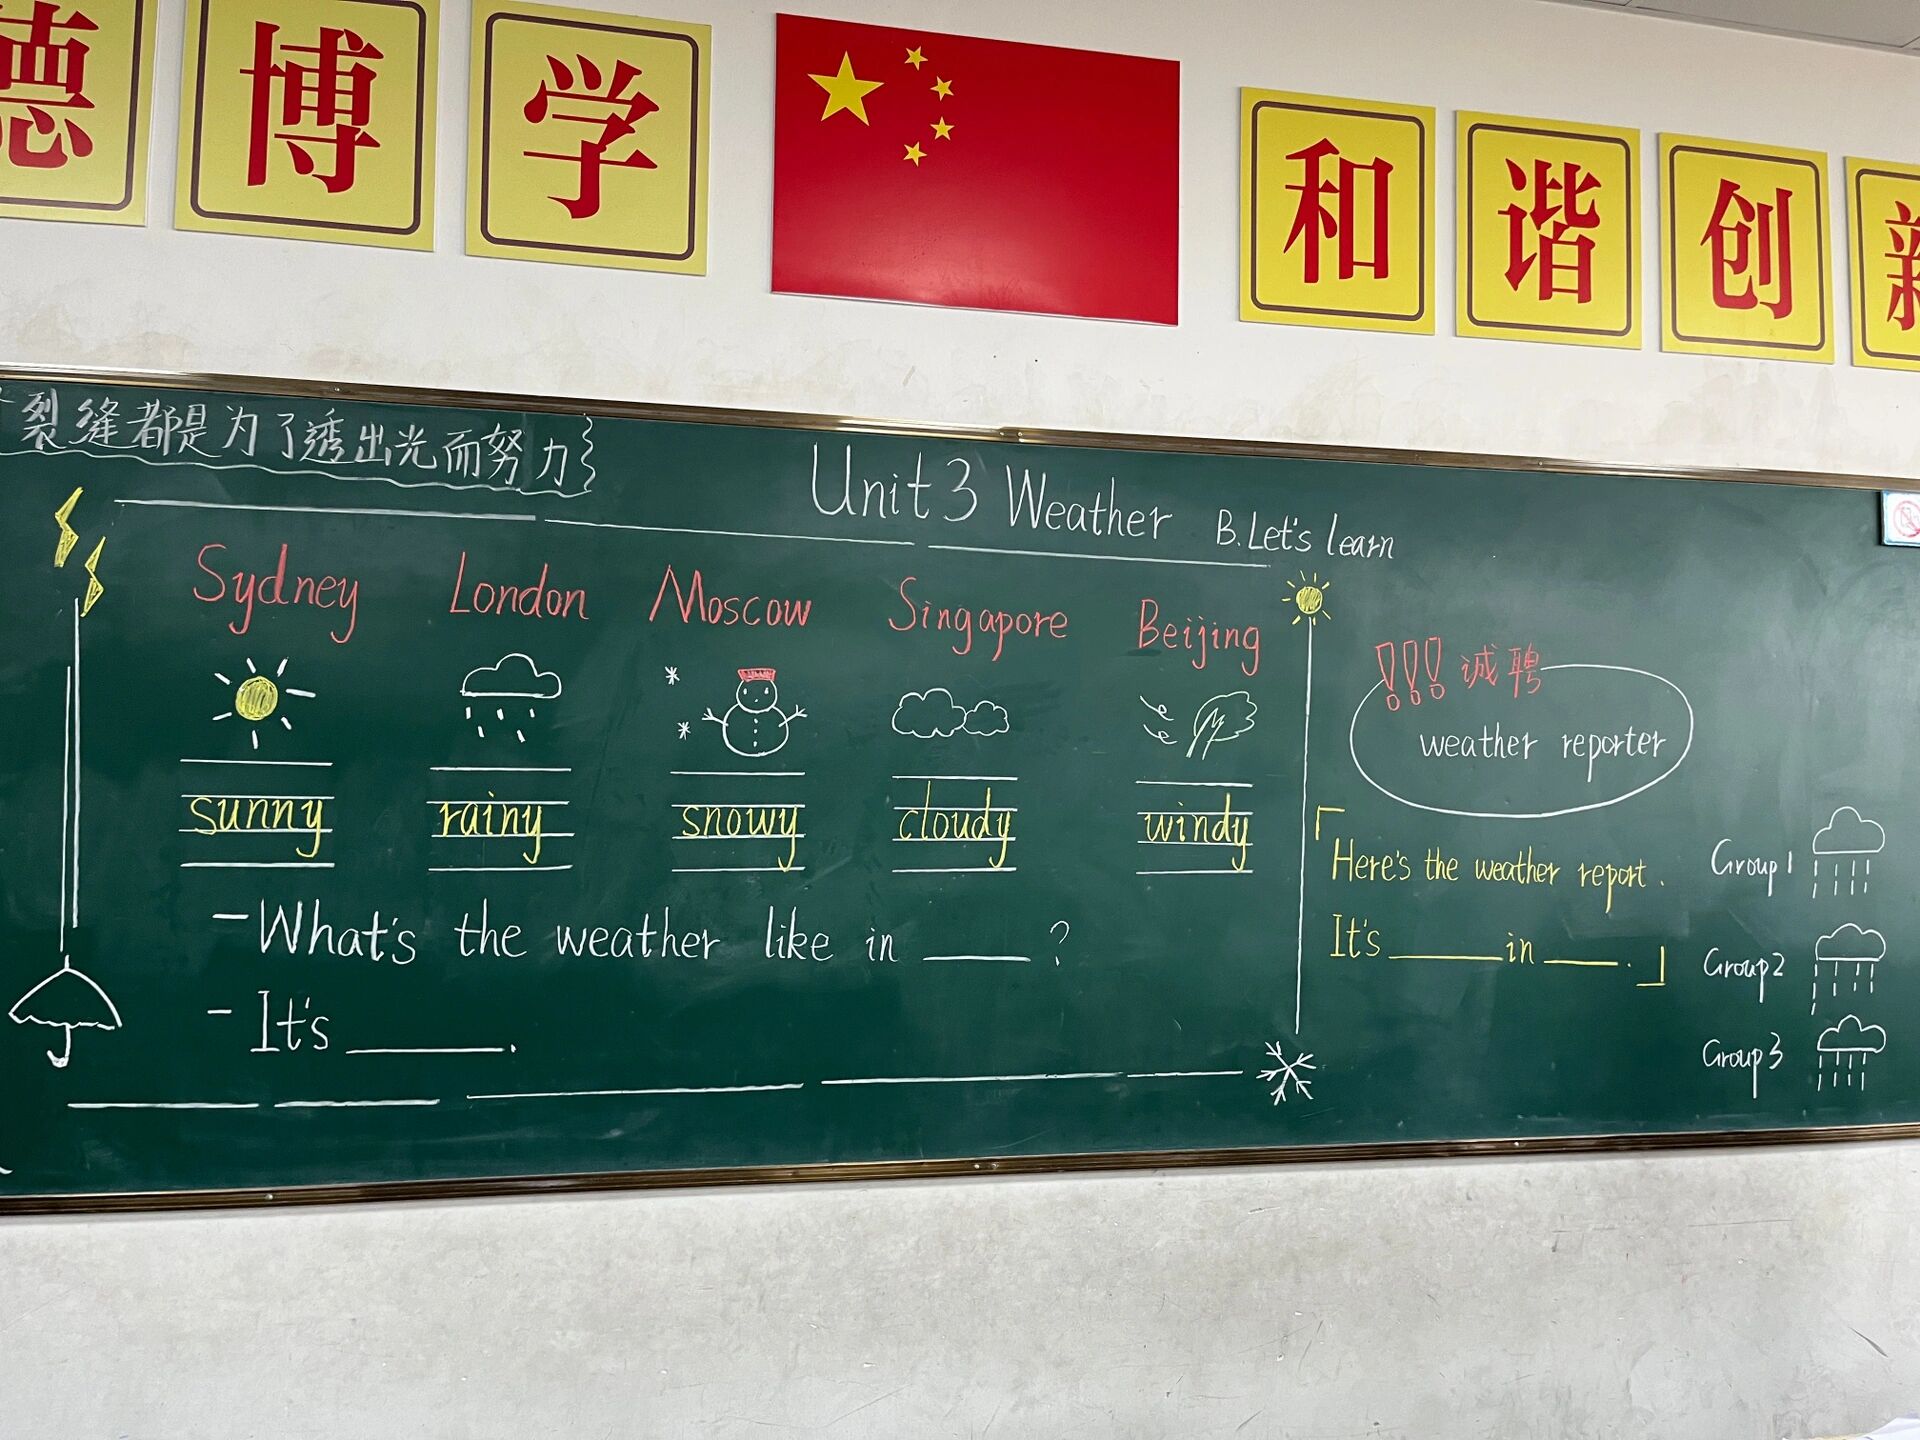 德 博 学 和 谐 创 新
裂缝都是为了透出光而努力
Unit 3 Weather B. Let's learn
Sydney London Moscow Singapore Beijing
sunny rainy snowy cloudy windy
-What's the weather like in ____ ?
- It's ______.
!!! 诚聘
weather reporter
「Here's the weather report.
It's ______ in ____.」
Group 1
Group 2
Group 3